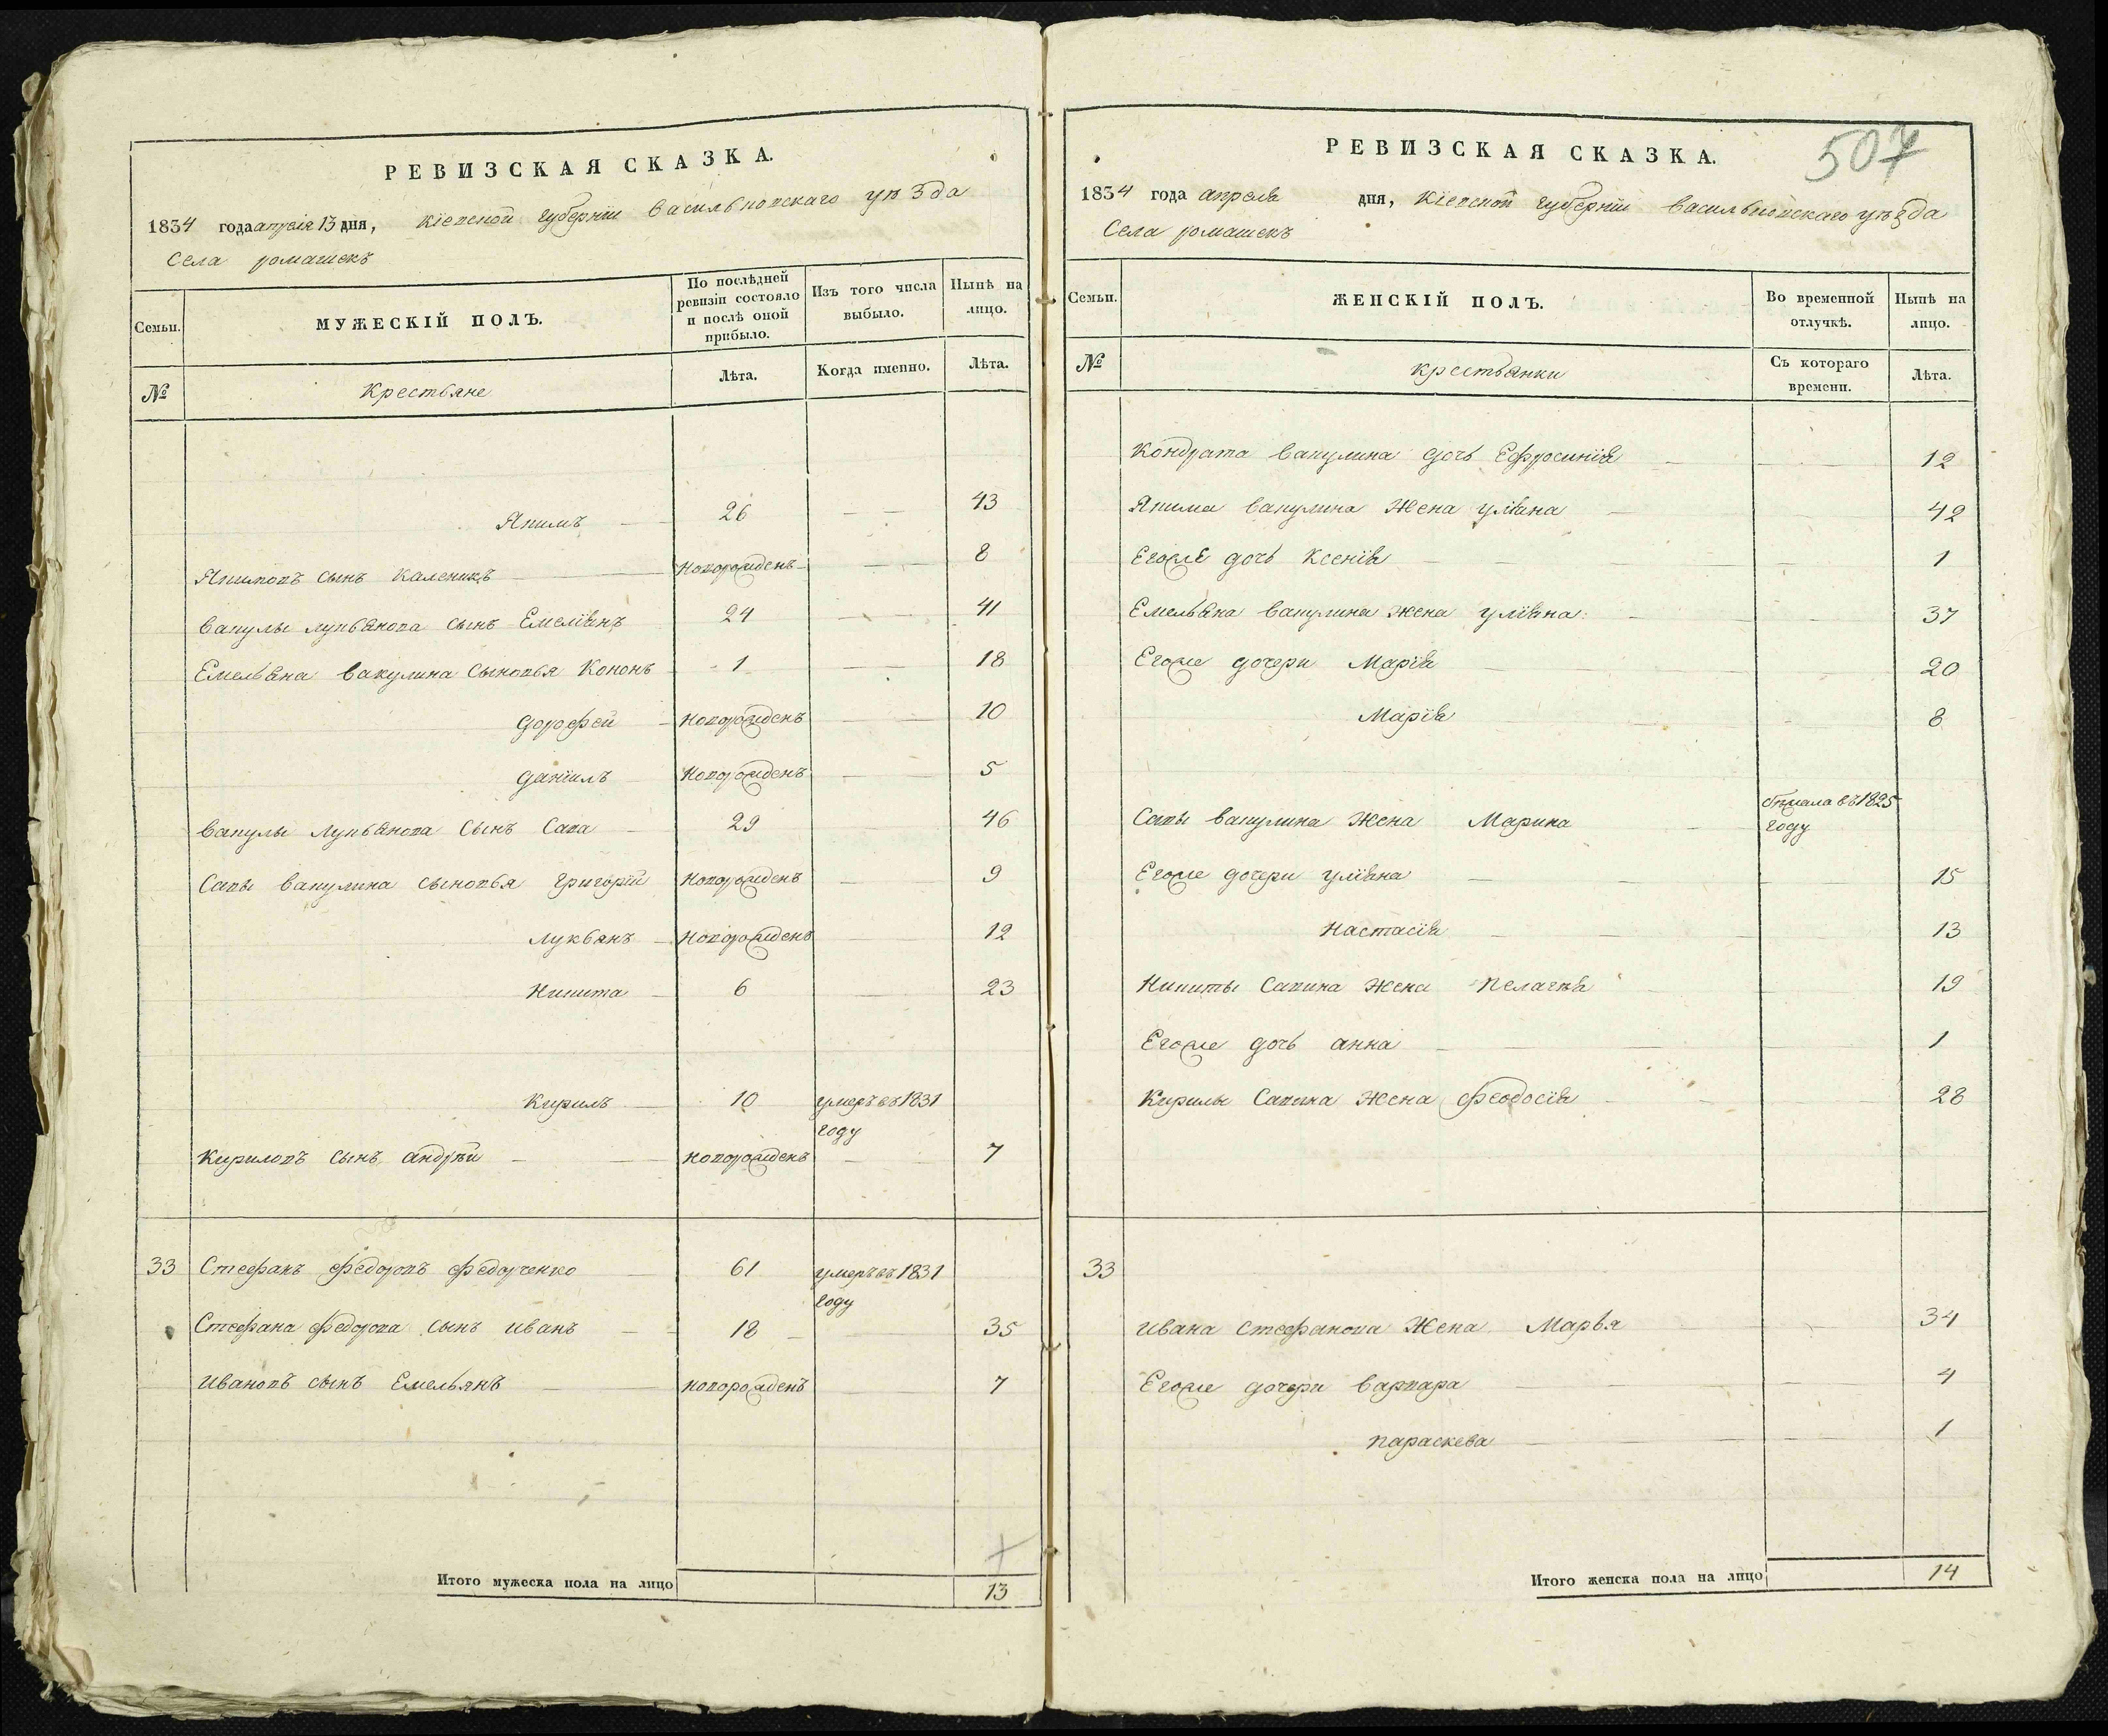 РЕВИЗСКАЯ СКАЗКА.
1834 года апреля 13 дня, Кіевской губерніи Васильковскаго уѣзда
Села ромашекъ
Семьи.
МУЖЕСКІЙ ПОЛЪ.
По послѣдней ревизіи состояло и послѣ оной прибыло.
Изъ того числа выбыло.
Нынѣ на лицо.
№
Крестьяне
Лѣта.
Когда именно.
Лѣта.
Якимъ 26 43
Якимовъ сынъ Каленикъ новорожденъ 8
Вакулы лукьянова сынъ Емеліянъ 24 41
Емельяна Вакулина Сыновья Кононъ 1 18
Дорофей новорожденъ 10
Даніилъ новорожденъ 5
Вакулы Лукьянова Сынъ Сава 29 46
Савы Вакулина сыновья Григорій новорожденъ 9
Лукьянъ новорожденъ 12
Никита 6 23
Кирилъ 10 умеръ въ 1831 году
Кириловъ сынъ андрѣй новорожденъ 7
33 Стефанъ Федоровъ Федорченко 61 умеръ въ 1831 году
Стефана Федорова сынъ иванъ 18 35
ивановъ сынъ Емельянъ новорожденъ 7
Итого мужеска пола на лицо 13
РЕВИЗСКАЯ СКАЗКА.
507
1834 года апреля дня, Кіевской губерніи Васильковскаго уѣзда
Села ромашекъ
Семьи.
ЖЕНСКІЙ ПОЛЪ.
Во временной отлучкѣ.
Нынѣ на лицо.
№
Крестьянки
Съ котораго времени.
Лѣта.
Кондрата Вакулина дочь Ефросинія 12
Якима Вакулина Жена уліяна 42
Егоже дочь Ксенія 1
Емельяна Вакулина жена уліяна 37
Егоже дочери Марія 20
Марія 8
Савы Вакулина Жена Марина бѣжала въ 1825 году
Егоже дочери уліяна 15
Настасія 13
Никиты Савина Жена Пелагѣя 19
Егоже дочь анна 1
Кирилы Савина Жена Феодосія 28
33
ивана Стефанова Жена Марья 34
Егоже дочери Варвара 4
параскева 1
Итого женска пола на лицо 14